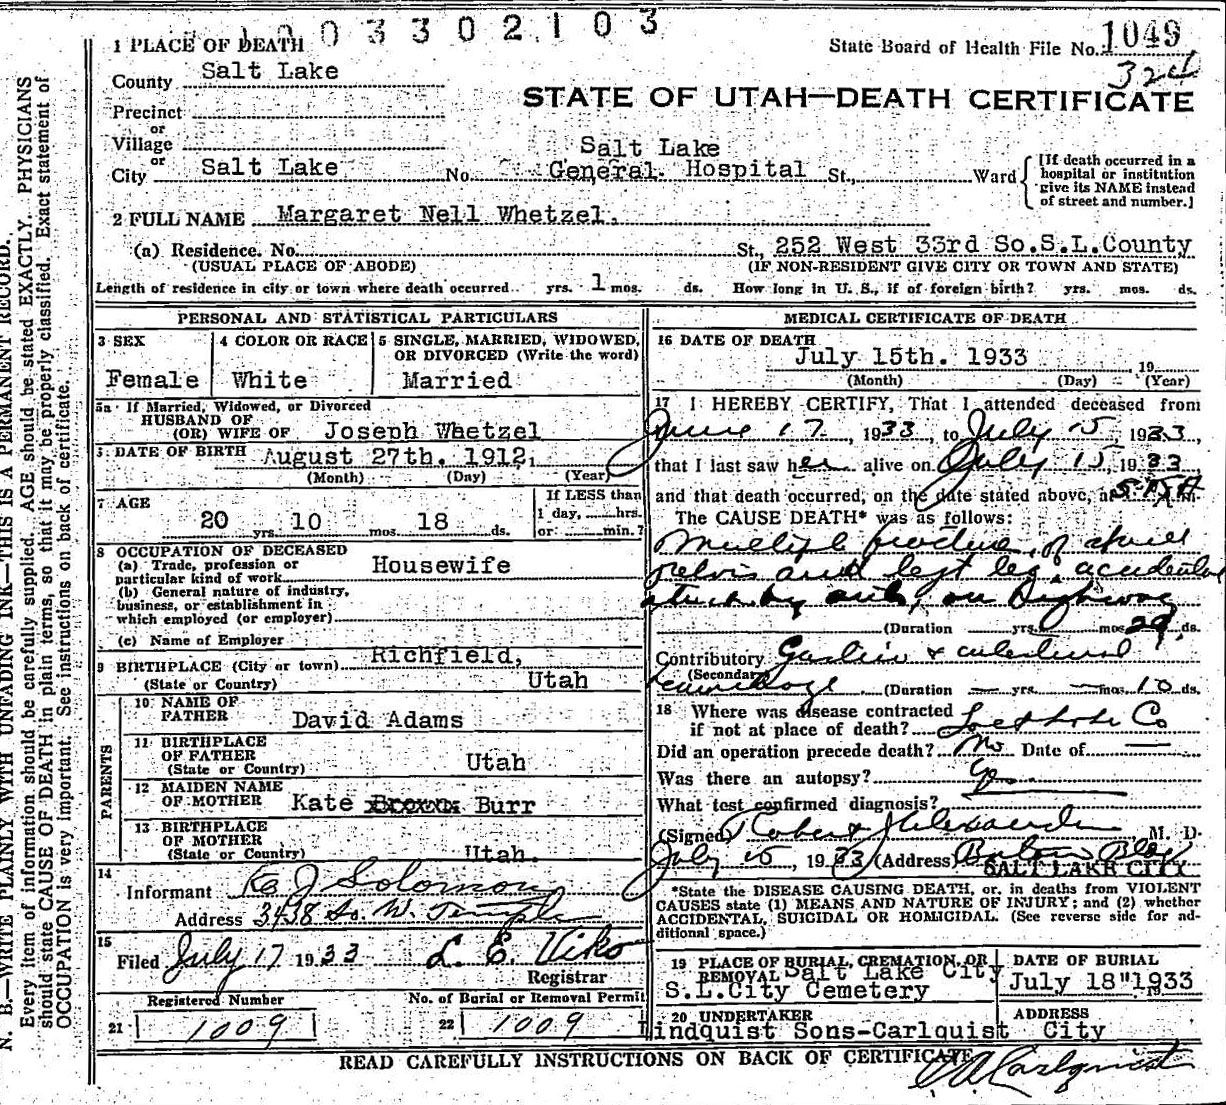 1003302103
State Board of Health File No. 1049
32d
STATE OF UTAH—DEATH CERTIFICATE
1 PLACE OF DEATH
County Salt Lake
Precinct
or
Village
or
City Salt Lake No. Salt Lake General Hospital St., Ward
[If death occurred in a hospital or institution give its NAME instead of street and number.]
2 FULL NAME Margaret Nell Whetzel.
(a) Residence. No. St., 252 West 33rd So.S.L.County
(USUAL PLACE OF ABODE) (IF NON-RESIDENT GIVE CITY OR TOWN AND STATE)
Length of residence in city or town where death occurred yrs. 1 mos. ds. How long in U. S., if of foreign birth? yrs. mos. ds.
PERSONAL AND STATISTICAL PARTICULARS
3 SEX
Female
4 COLOR OR RACE
White
5 SINGLE, MARRIED, WIDOWED,
OR DIVORCED (Write the word)
Married
5a If Married, Widowed, or Divorced
HUSBAND OF
(OR) WIFE OF Joseph Whetzel
DATE OF BIRTH August 27th. 1912.
(Month) (Day) (Year)
7 AGE
20 yrs. 10 mos. 18 ds.
If LESS than
1 day, hrs.
or min.?
8 OCCUPATION OF DECEASED
(a) Trade, profession or
particular kind of work Housewife
(b) General nature of industry,
business, or establishment in
which employed (or employer)
(c) Name of Employer
9 BIRTHPLACE (City or town) Richfield,
(State or Country) Utah
PARENTS
10 NAME OF
FATHER David Adams
11 BIRTHPLACE
OF FATHER
(State or Country) Utah
12 MAIDEN NAME
OF MOTHER Kate Burr
13 BIRTHPLACE
OF MOTHER
(State or Country) Utah.
14
Informant J Solomon
Address 3438 So. W. Temple
15
Filed July 17 1933 L. E. Viko
Registrar
Registered Number
21 1009
No. of Burial or Removal Permit
22 1009
MEDICAL CERTIFICATE OF DEATH
16 DATE OF DEATH
July 15th. 1933 19
(Month) (Day) (Year)
17 I HEREBY CERTIFY, That I attended deceased from
June 17, 1933, to July 15 1933
that I last saw her alive on July 15, 1933
and that death occurred, on the date stated above, at
The CAUSE DEATH* was as follows:
Multiple fracture of skull
pelvis and left leg, accidental
struck by auto, on Highway
(Duration yrs. mos. 29 ds.
Contributory Gastric &
(Secondary) (Duration — yrs. — mos. 10 ds.
18 Where was disease contracted
if not at place of death? Co
Did an operation precede death? No Date of —
Was there an autopsy?
What test confirmed diagnosis?
(Signed) Robert J Alexander, M. D.
July 15, 1933 (Address) Boston Bldg
SALT LAKE CITY
*State the DISEASE CAUSING DEATH, or, in deaths from VIOLENT
CAUSES state (1) MEANS AND NATURE OF INJURY; and (2) whether
ACCIDENTAL, SUICIDAL OR HOMICIDAL. (See reverse side for ad-
ditional space.)
19 PLACE OF BURIAL, CREMATION, OR
REMOVAL Salt Lake City
S.L.City Cemetery
DATE OF BURIAL
July 18" 1933
19
20 UNDERTAKER
Lindquist Sons-Carlquist
ADDRESS
City
READ CAREFULLY INSTRUCTIONS ON BACK OF CERTIFICATE
Carlquist
N. B.—WRITE PLAINLY WITH UNFADING INK—THIS IS A PERMANENT RECORD.
Every item of information should be carefully supplied. AGE should be stated EXACTLY. PHYSICIANS
should state CAUSE OF DEATH in plain terms, so that it may be properly classified. Exact statement of
OCCUPATION is very important. See instructions on back of certificate.